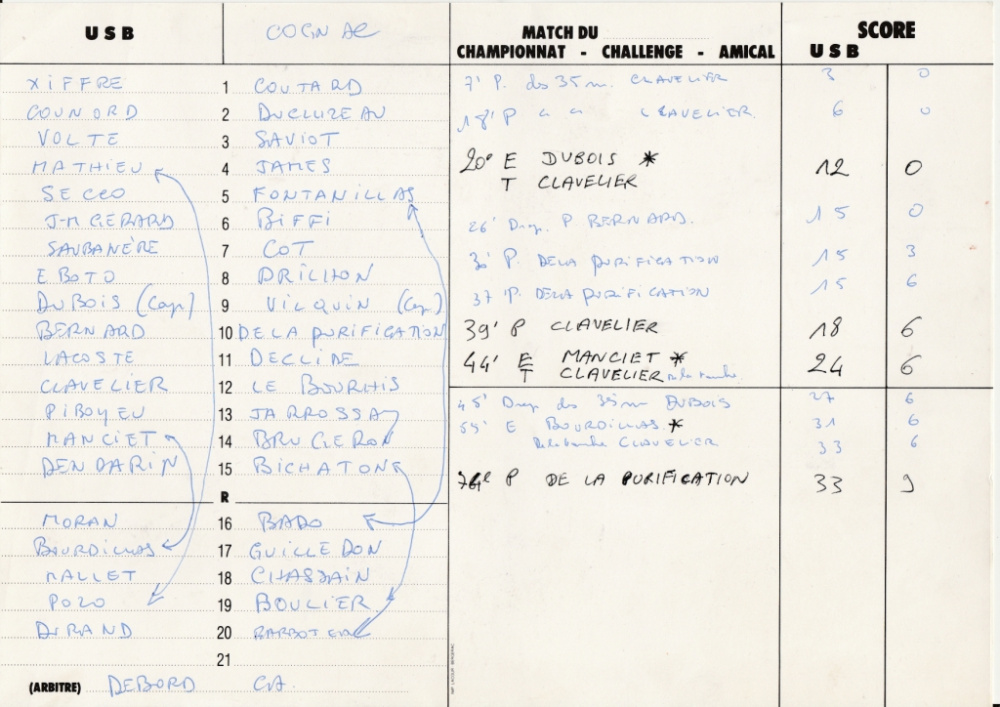 USB COGNAC MATCH DU SCORE
CHAMPIONNAT - CHALLENGE - AMICAL USB
XIFFRE 1 COUTARD
COUNORD 2 DUCLUZEAU
VOLTE 3 SAVIOT
MATHIEU 4 JAMES
SECCO 5 FONTANILLAS
J-M GERARD 6 BIFFI
SAUBANÈRE 7 COT
EBOTO 8 DRILHON
DUBOIS (Cap) 9 VILQUIN (Cap)
BERNARD 10 DE LA PURIFICATION
LACOSTE 11 DECLIDE
CLAVELIER 12 LE BOURHIS
PIBOYEU 13 JARROSSAY
MANCIET 14 BRUGERON
DENDARIN 15 BICHATON
R
MORAN 16 BADO
BOURDILLAS 17 GUILLEDON
MALLET 18 CHASSAIN
POZO 19 BOULIER
DURAND 20 BARBOTEAU
21
(ARBITRE) DEBORD CA.
7' P. des 35 m. CLAVELIER 3 0
18' P " " CLAVELIER. 6 0
20' E DUBOIS * 12 0
T CLAVELIER
26' Drop. P BERNARD. 15 0
30' P. DE LA PURIFICATION 15 3
37' P. DE LA PURIFICATION 15 6
39' P CLAVELIER 18 6
44' E MANCIET * 24 6
T CLAVELIER de la touche
45' Drop des 35 m DUBOIS 27 6
54' E BOURDILLAS * 31 6
De la touche CLAVELIER 33 6
76' P DE LA PURIFICATION 33 9